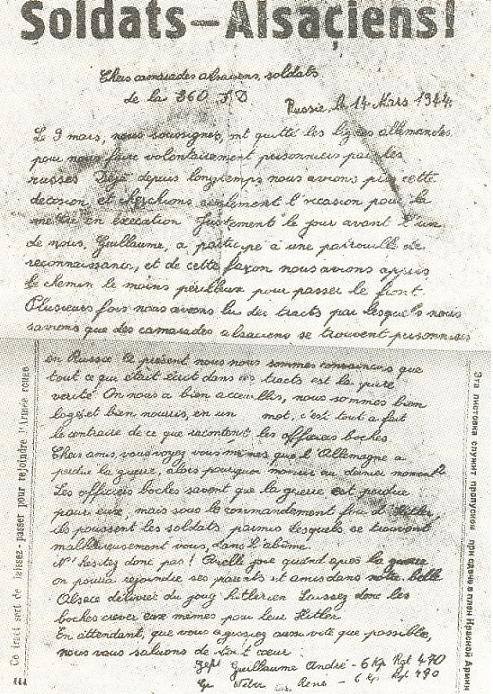 Soldats-Alsaciens!
Chers camarades alsaciens, soldats
de la 360 I D
Russie, le 14 Mars 1944.
Le 9 mars, nous soussignés, ont quitté les lignes allemandes
pour nous faire volontairement prisonniers par les
russes Déjà depuis longtemps nous avions pris cette
decision, et cherchions seulement l'occasion pour la
mettre en exécution Justement le jour avant l'un
de nous, Guillaume, a participé à une patrouille de
reconnaissance, et de cette façon nous avions appris
le chemin le moins périlleux pour passer le front.
Plusieurs fois nous avons lu des tracts par lesquels nous
savions que des camarades alsaciens se trouvent prisonniers
en Russie le présent nous nous sommes convaincus que
tout ce qui était écrit dans ces tracts est la pure
verité On nous a bien accueillis, nous sommes bien
logés et bien nourris, en un mot, c'est tout a fait
le contraire de ce que racontent les officiers boches.
Chers amis, vous voyez vous mêmes que l'Allemagne a
perdu la guerre, alors pourquoi mourir au dernier moment?
Les officiers boches savent que la guerre est perdue
pour eux, mais sous le commandement fou d'Hitler,
ils poussent les soldats parmis lesquels se trouvent
malheureusement vous, dans l'abîme.
N'hesitez donc pas! Quelle joie quand après la guerre
on pourra rejoindre ses parents et amis dans notre belle
Alsace délivrée du joug hitlerien Laissez donc les
boches crever eux mêmes pour leur Hitler.
En attendant, que vous agissiez aussi vite que possible,
nous vous saluons de tout cœur
Gefr Guillaume André - 6 Kp Rgt 490
Weber René - 6 Kp Rgt 490
Ce tract sert de laissez-passer pour rejoindre l'Armée rouge
444
Эта листовка служит пропуском при сдаче в плен Красной Армии